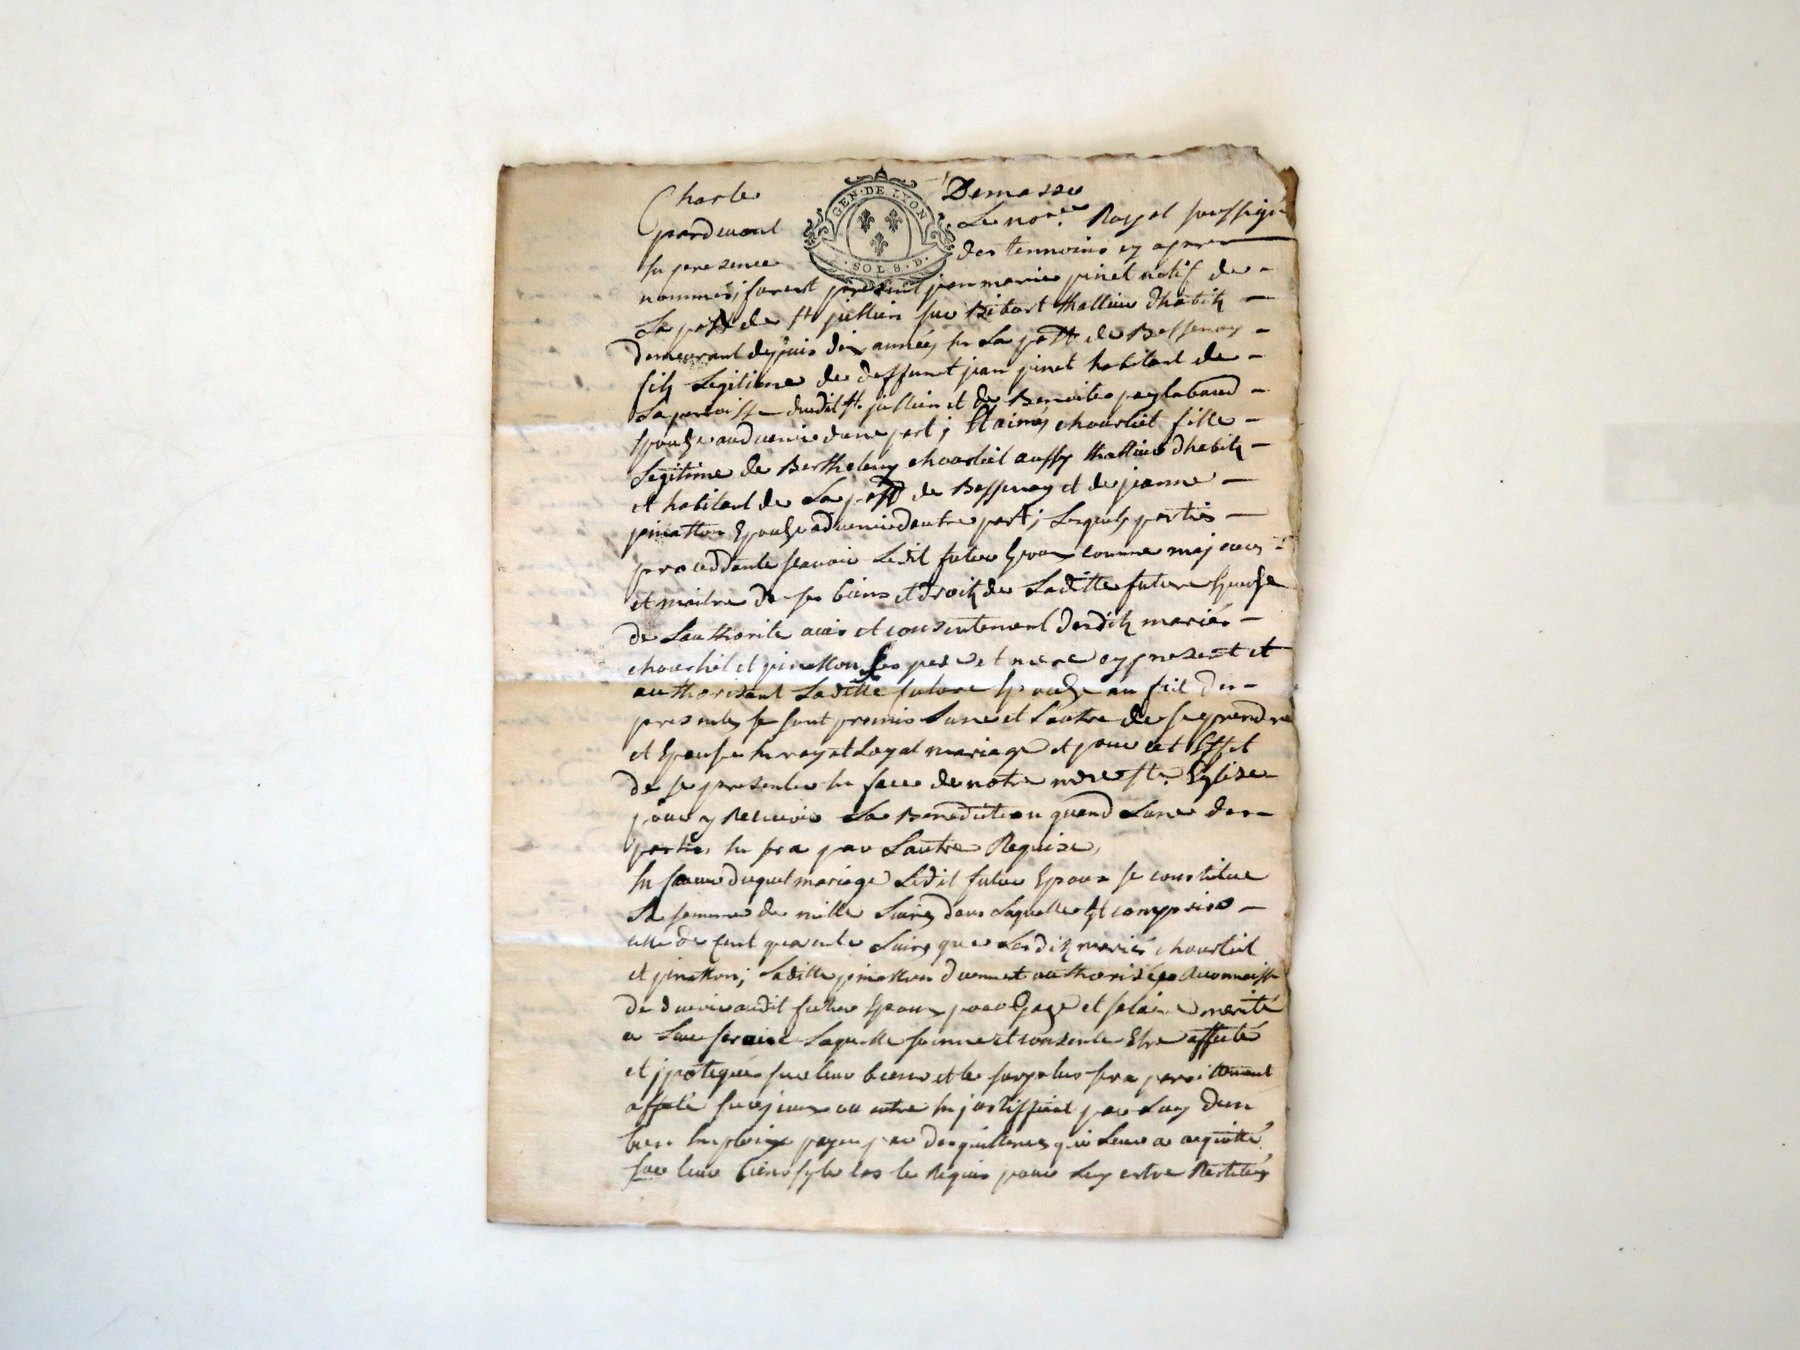 Charle Demasse
GEN·DE LYON
SOLS·D·
pardevant Le no.re Royal soussigné
En presence des temmoins cy apres
nommés, furent present jean marie pinet natif de
La pass de st jullien sur Bibost thallieur dhabitz
demeurant depuis dix années En La pass de Bessenay
filz Legitime de deffunct jean pinet habitant de
La paroisse dudit st. jullien et de Benoite
Epouze advenir dune part; Et aimé chouvliet fille
Legitime de Berthelemy aussy thallieur dhabitz
et habitant de La pass de Bessenay et de jeanne
pinatton Epouze advenir dautre part; Lesquels parties
proceddants scavoir Ledit futur Epoux comme majeur
et maitre de ses biens et droitz de Laditte future Epouse
de Lauthorité avis et consentement desditz mariés
et pinatton ses pere et mere cy present et
authorisant Laditte future Epouze au fait des
presentes se sont promis Lune et Lautre de se prendre
et Epouser En vray et Loyal mariage et pour cet Effet
de se presenter En face de notre mere ste. Eglise
pour y Recevoir La Benediction quand Lune des
parties En sera par Lautre Requise,
En faveur duquel mariage Ledit futur Epoux se constitue
La somme de mille Livres dans Laquelle Est comprise
celle de cent quarante Livres que Lesditz mariés
et pinatton; Laditte pinatton duement authorisée
de devoir audit futur Epoux pour Gage et salaire merité
a Leur service Laquelle somme et consente Etre affecté
et jpotequé sur leur biens et le surplus sera pareillement
affecté sur ceux ou autre En justiffiant par Luy dun
bien Employ payer par des quittances qui Leur a acquitté
sur leur biens le cas le Requis pour Luy estre Restitués